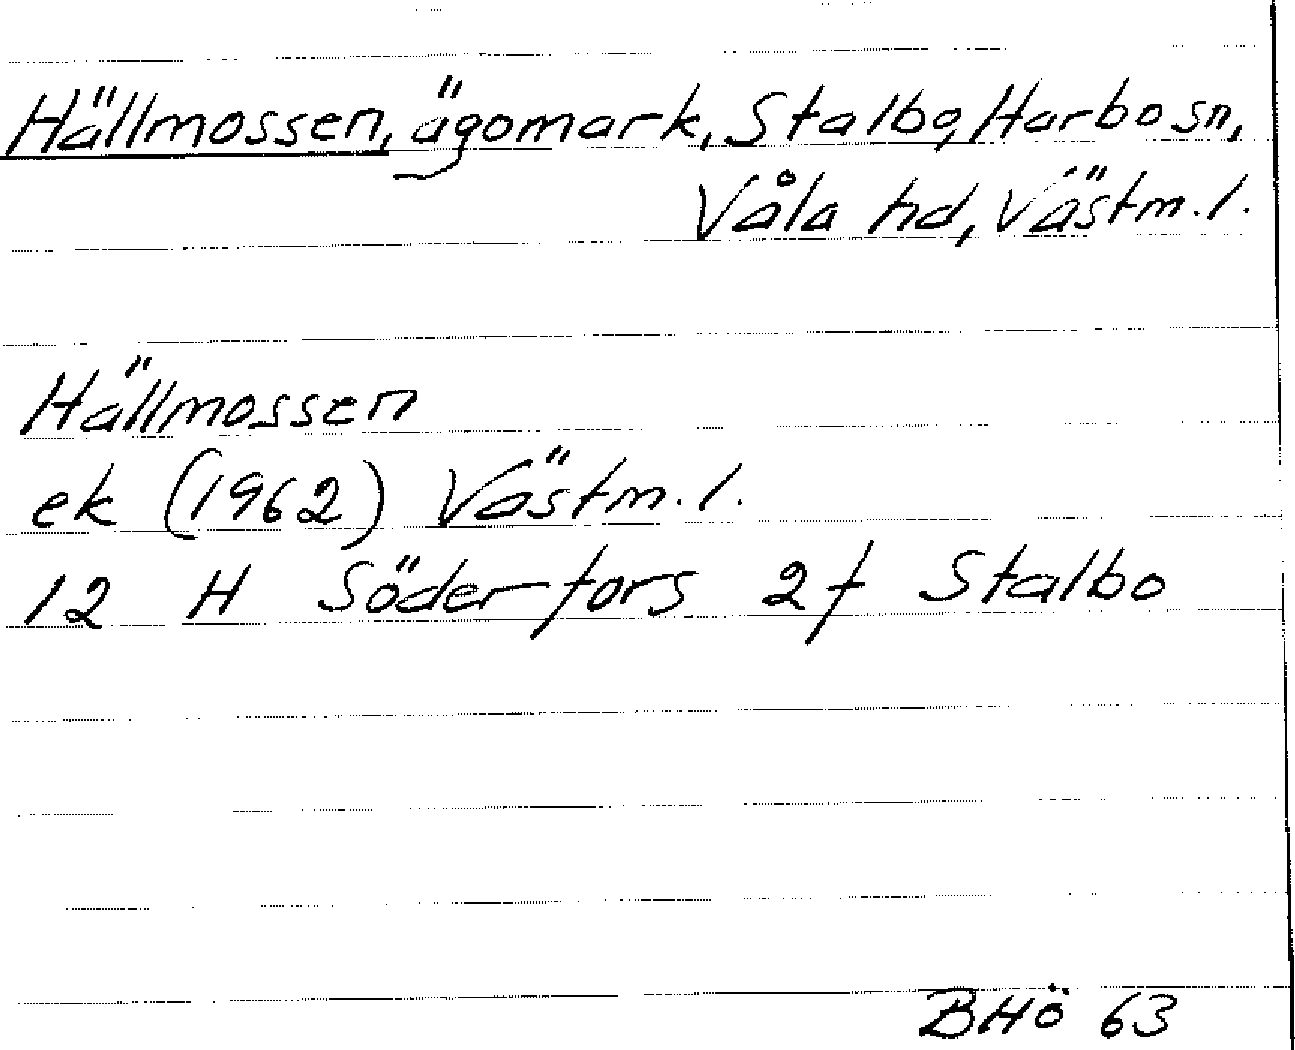 Hällmossen, ägomark, Stalbo, Harbo sn,
Våla hd, Västm. l.
Hällmossen
ek (1962) Västm. l.
12 H Söderfors 2f Stalbo
BHö 63